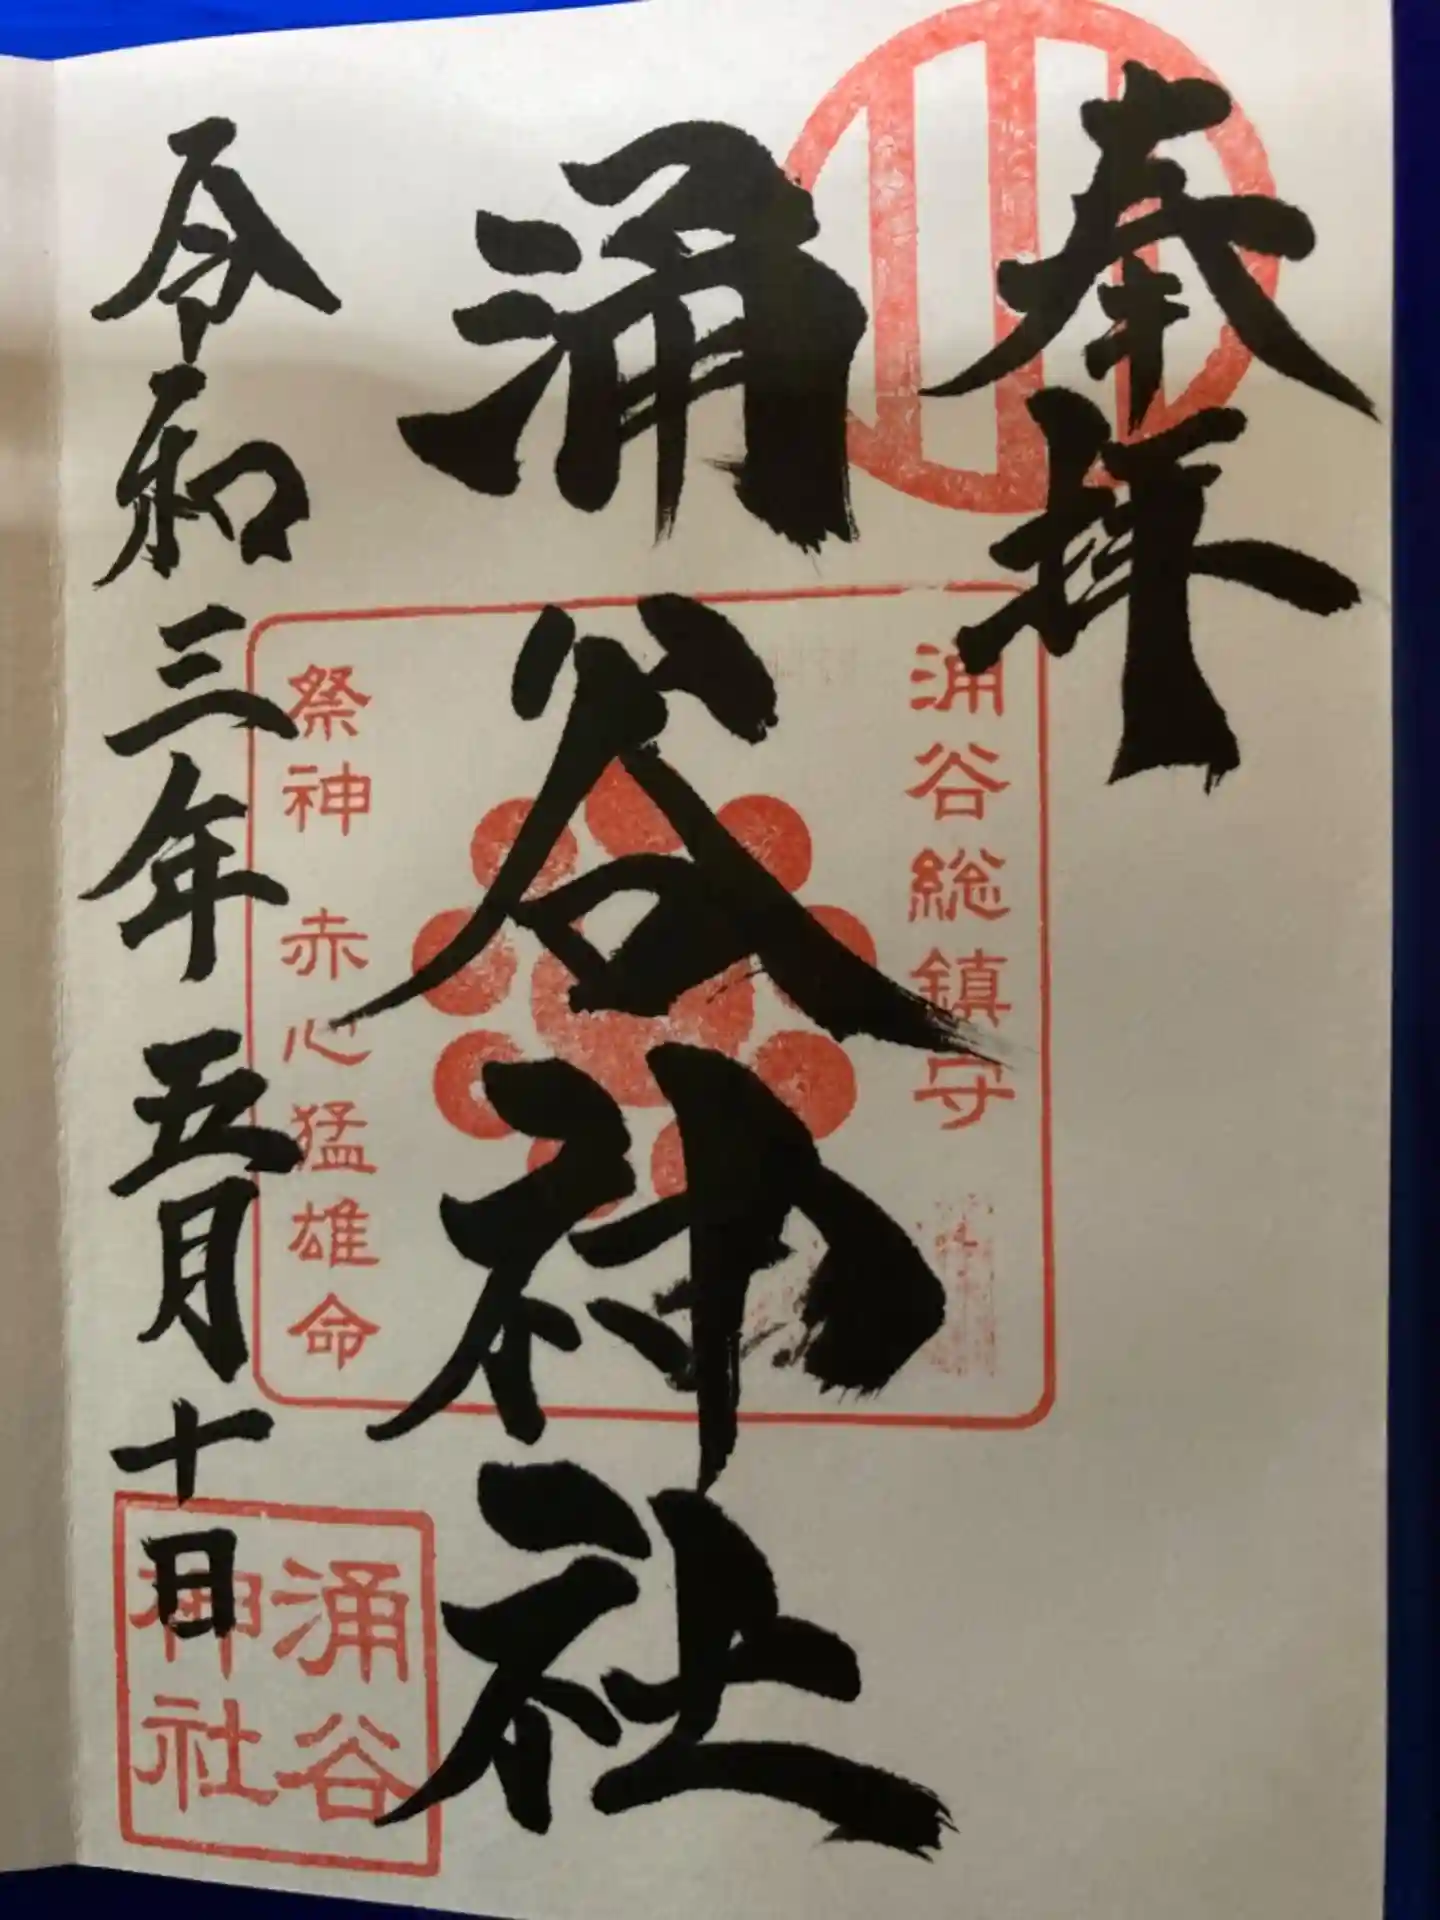 奉拝
涌谷総鎮守
涌谷神社
祭神 赤心猛雄命
令和三年 五月十日
涌谷
神社